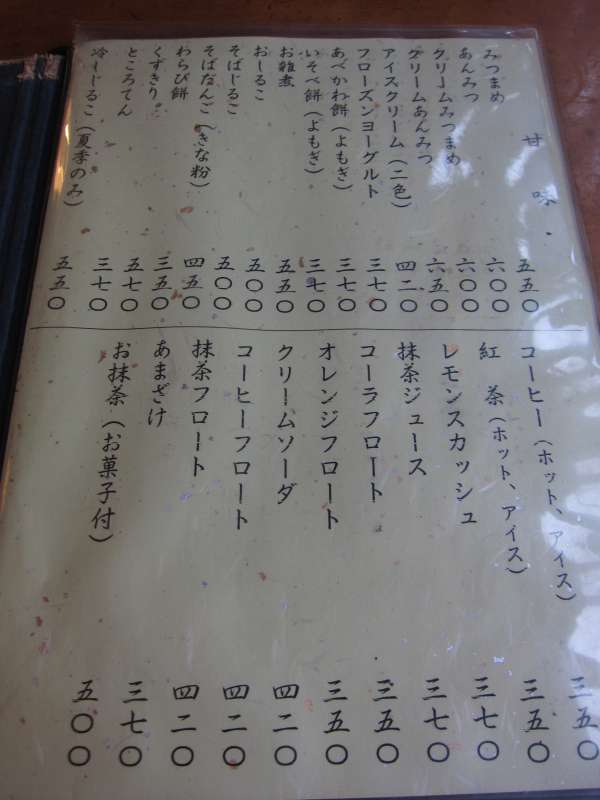 甘味
みつまめ 五五〇
あんみつ 六〇〇
クリームみつまめ 六〇〇
クリームあんみつ 六五〇
アイスクリーム(二色) 四二〇
フローズンヨーグルト 三七〇
あべかわ餅(よもぎ) 三七〇
いそべ餅(よもぎ) 三七〇
お雑煮 五五〇
おしるこ 五〇〇
そばじるこ 五〇〇
そばだんご(きな粉) 四五〇
わらび餅 三五〇
くずきり 五七〇
ところてん 三七〇
冷しじるこ(夏季のみ) 五五〇
コーヒー(ホット、アイス) 三五〇
紅茶(ホット、アイス) 三五〇
レモンスカッシュ 三七〇
抹茶ジュース 三七〇
コーラフロート 三五〇
オレンジフロート 三五〇
クリームソーダ 四二〇
コーヒーフロート 四二〇
抹茶フロート 四二〇
あまざけ 三七〇
お抹茶(お菓子付) 五〇〇